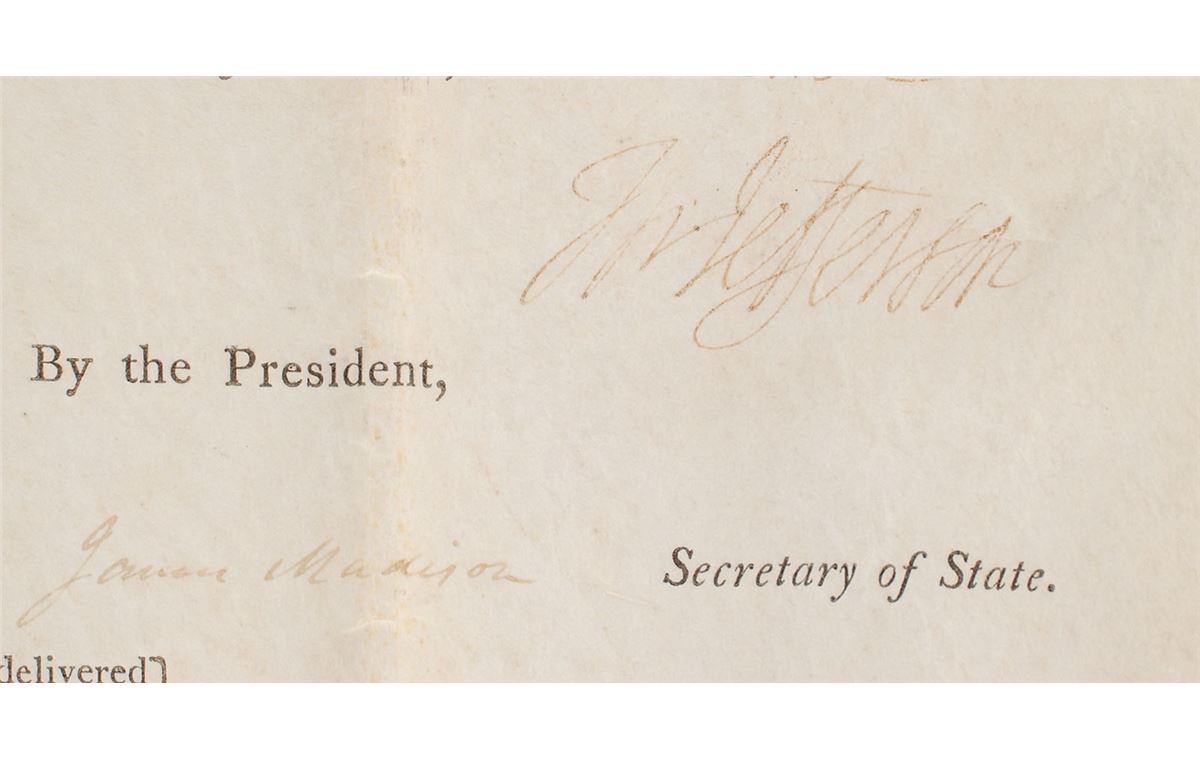 Th: Jefferson
By the President,
James Madison Secretary of State.
delivered]